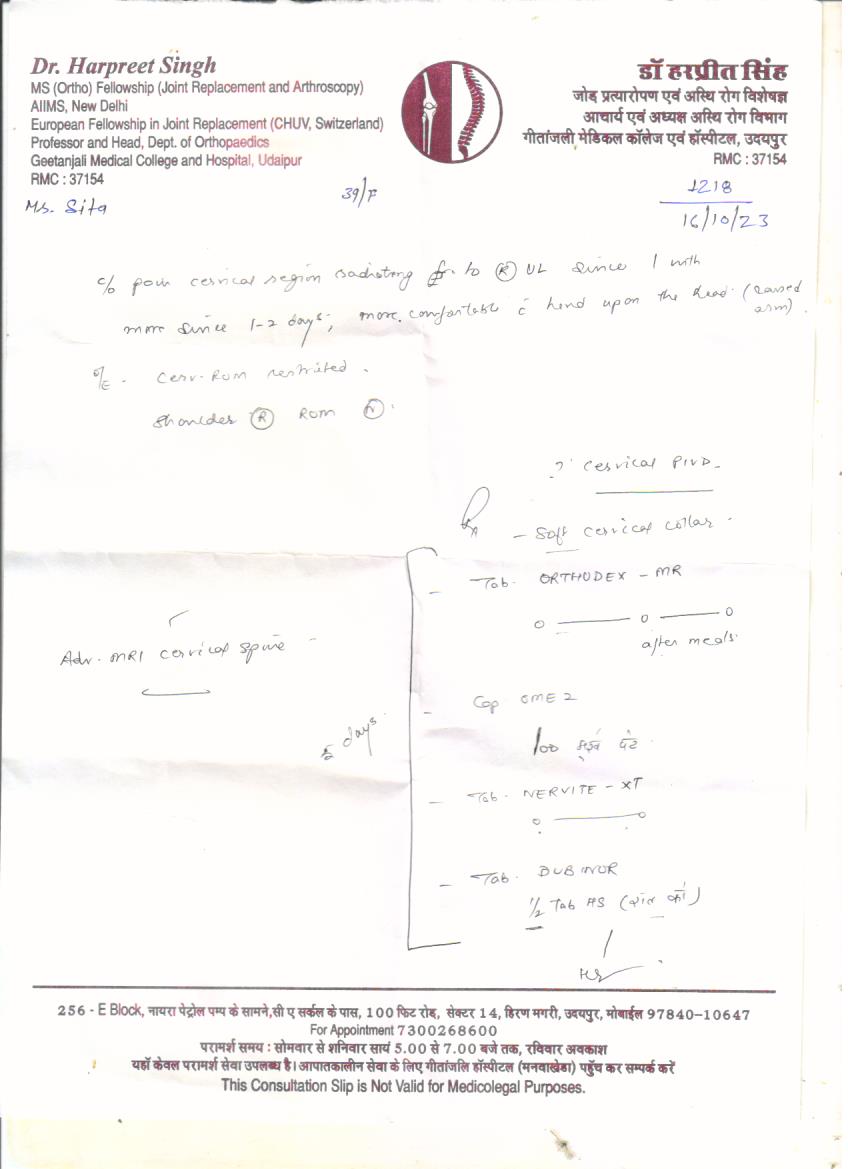 Dr. Harpreet Singh
MS (Ortho) Fellowship (Joint Replacement and Arthroscopy)
AIIMS, New Delhi
European Fellowship in Joint Replacement (CHUV, Switzerland)
Professor and Head, Dept. of Orthopaedics
Geetanjali Medical College and Hospital, Udaipur
RMC : 37154
डॉ हरप्रीत सिंह
जोड़ प्रत्यारोपण एवं अस्थि रोग विशेषज्ञ
आचार्य एवं अध्यक्ष अस्थि रोग विभाग
गीतांजली मेडिकल कॉलेज एवं हॉस्पीटल, उदयपुर
RMC : 37154
Ms. Sita
39/F
1218
16/10/23
c/o pain cervical region radiating to (R) UL since 1 mth
more since 1-2 days; more comfortable c hand upon the head (raised arm).
O/E - Cerv. ROM restricted.
Shoulder (R) ROM (N).
? Cervical PIVD
Rx
- Soft cervical collar
- Tab. ORTHODEX - MR
o — o — o
after meals
Adv. MRI cervical spine
- Cap OME 2
100 पेट
days
- Tab. NERVITE - XT
o — o
- Tab. DUBINOR
1/2 Tab HS (रात को)
256 - E Block, नायरा पेट्रोल पम्प के सामने,सी ए सर्कल के पास, 100 फिट रोड, सेक्टर 14, हिरण मगरी, उदयपुर, मोबाईल 97840-10647
For Appointment 7300268600
परामर्श समय : सोमवार से शनिवार सायं 5.00 से 7.00 बजे तक, रविवार अवकाश
यहाँ केवल परामर्श सेवा उपलब्ध है। आपातकालीन सेवा के लिए गीतांजलि हॉस्पीटल (मनवाखेडा) पहुँच कर सम्पर्क करें
This Consultation Slip is Not Valid for Medicolegal Purposes.